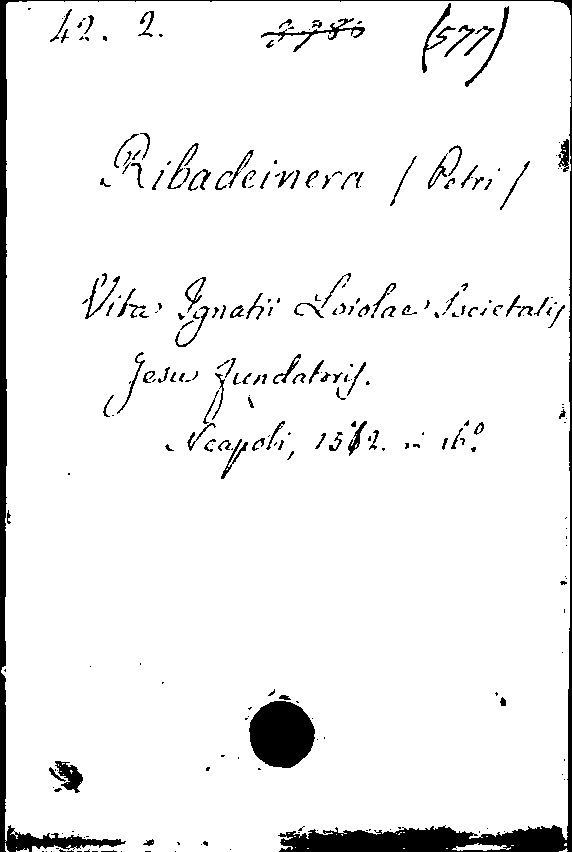 42. 2. (577)
Ribadeinera / Petri /
Vita Ignatii Loiolae Societatis
Jesu fundatoris.
Neapoli, 1572. in 16º.